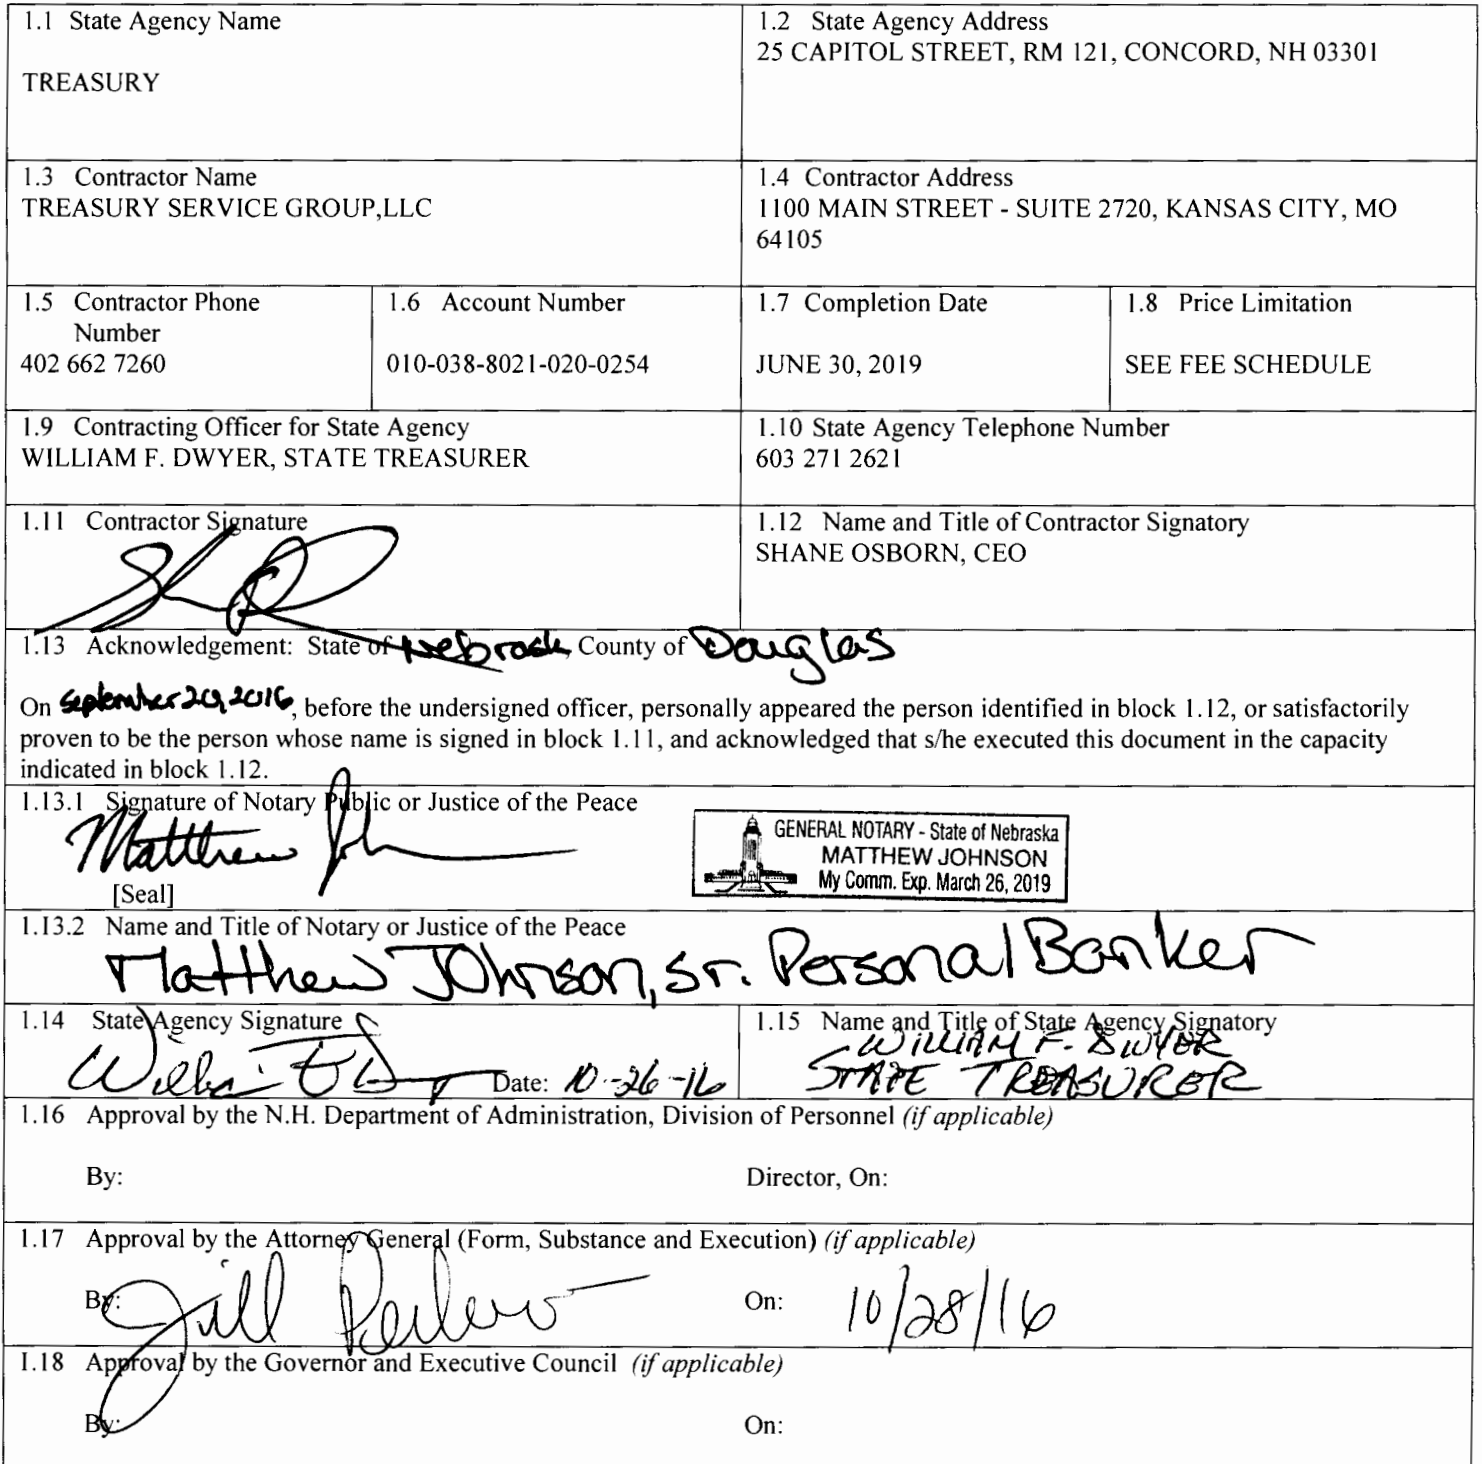 1.1 State Agency Name
TREASURY
1.2 State Agency Address
25 CAPITOL STREET, RM 121, CONCORD, NH 03301
1.3 Contractor Name
TREASURY SERVICE GROUP,LLC
1.4 Contractor Address
1100 MAIN STREET - SUITE 2720, KANSAS CITY, MO
64105
1.5 Contractor Phone
Number
402 662 7260
1.6 Account Number
010-038-8021-020-0254
1.7 Completion Date
JUNE 30, 2019
1.8 Price Limitation
SEE FEE SCHEDULE
1.9 Contracting Officer for State Agency
WILLIAM F. DWYER, STATE TREASURER
1.10 State Agency Telephone Number
603 271 2621
1.11 Contractor Signature
1.12 Name and Title of Contractor Signatory
SHANE OSBORN, CEO
1.13 Acknowledgement: State of Nebraska, County of Douglas
On September 20, 2016, before the undersigned officer, personally appeared the person identified in block 1.12, or satisfactorily
proven to be the person whose name is signed in block 1.11, and acknowledged that s/he executed this document in the capacity
indicated in block 1.12.
1.13.1 Signature of Notary Public or Justice of the Peace
Matthew
[Seal]
GENERAL NOTARY - State of Nebraska
MATTHEW JOHNSON
My Comm. Exp. March 26, 2019
1.13.2 Name and Title of Notary or Justice of the Peace
Matthew Johnson, Sr. Personal Banker
1.14 State Agency Signature
Date: 10-26-16
1.15 Name and Title of State Agency Signatory
WILLIAM F. DWYER
STATE TREASURER
1.16 Approval by the N.H. Department of Administration, Division of Personnel (if applicable)
By:
Director, On:
1.17 Approval by the Attorney General (Form, Substance and Execution) (if applicable)
By: Jill
On: 10/28/16
1.18 Approval by the Governor and Executive Council (if applicable)
By:
On: